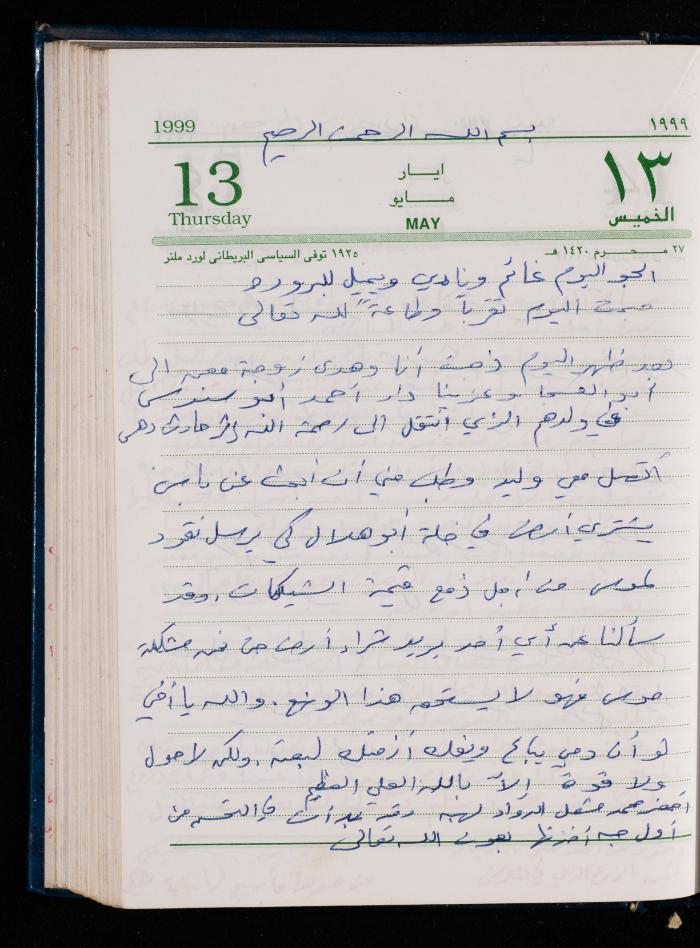 1999 بسم الله الرحمن الرحيم ١٩٩٩
13 ايار ١٣
Thursday مايو الخميس
MAY
٢٧ محرم ١٤٢٠ هـ ١٩٢٥ توفى السياسى البريطانى لورد ملنر
الجو اليوم غائم ونادي ويميل للبروده
صمت اليوم تقرباً وطاعةً لله تعالى
بعد ظهر اليوم ذهبت أنا وهدى زوجة معين الى
أبو العسجا وعزينا دار احمد أبو سندس
في ولدهم الذي انتقل الى رحمة الله إثر حادث دهس
أتصل معي وليد وطلب مني أن أبحث عن ناس
يشتري أرض في خلة أبو هلال كي يرسل نقود
لموسى من اجل دفع قيمة الشيكات، وقد
سألنا عن أي أحد يريد شراء أرض من مشكلة
موسى فهو لا يستحق هذا الوضع، والله يا أخي
لو أن دمي يباع ويفك أزمتك لبعته، ولكن لا حول
ولا قوة إلاّ بالله العلي العظيم
أحضر محمد مشعل الدواد لهبه وقد بدأت في التحسن من
أول حبه أخذتها بعون الله تعالى